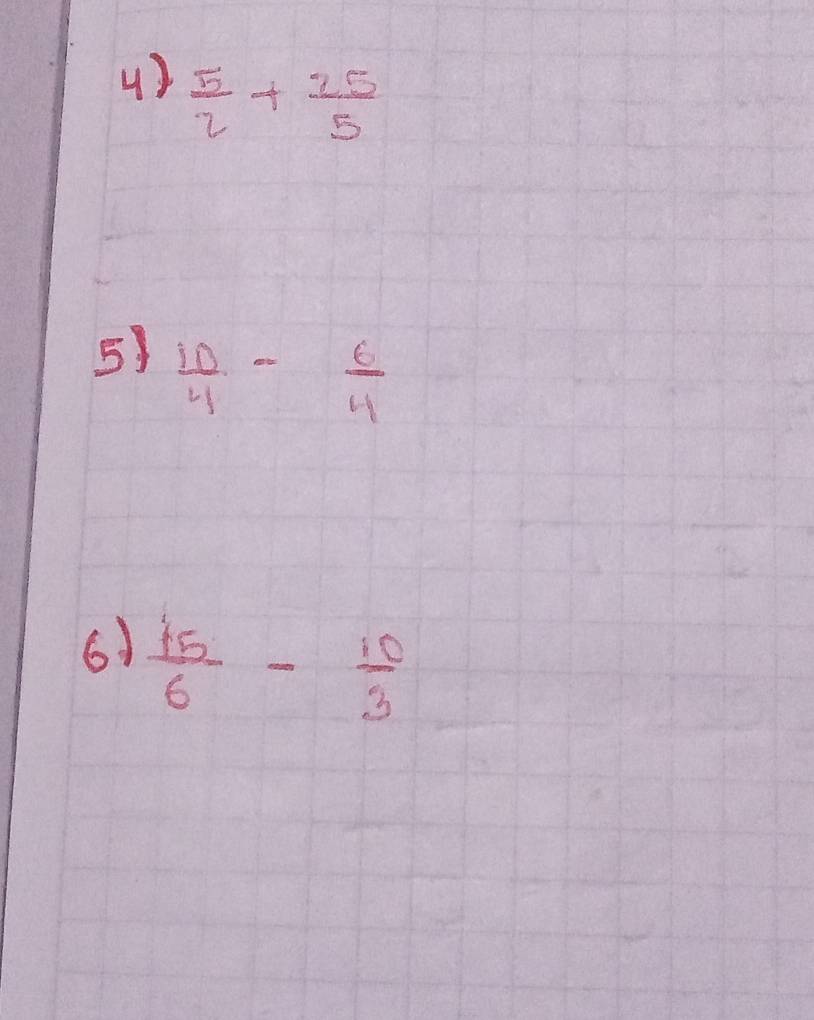 4) 5/2 + 25/5
5) 10/4 - 6/4
6) 15/6 - 10/3